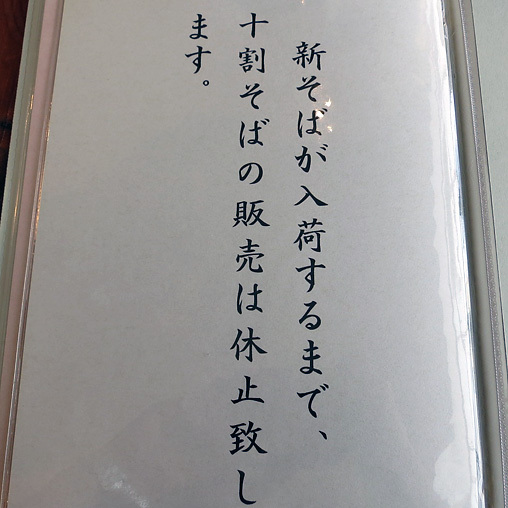 新そばが入荷するまで、
十割そばの販売は休止致し
ます。